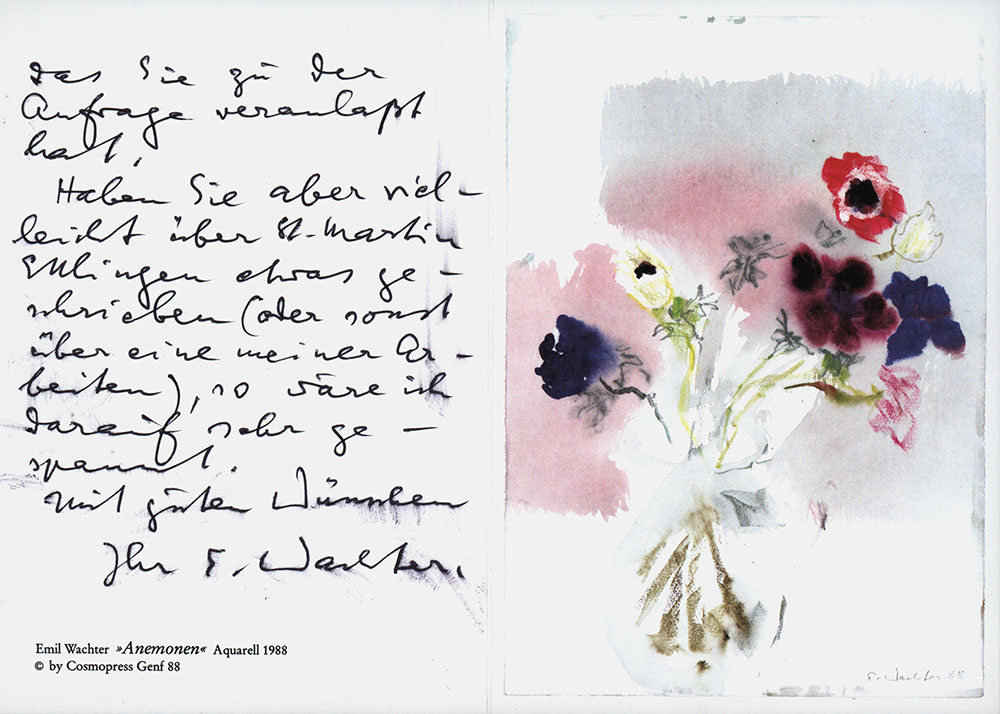 das Sie zu der
Anfrage veranlaßt
hat.
Haben Sie aber viel-
leicht über St. Martin
Ettlingen etwas ge-
schrieben (oder sonst
über eine meiner Ar-
beiten), so wäre ich
darauf sehr ge-
spannt.
Mit guten Wünschen
Ihr E. Wachter.
Emil Wachter »Anemonen« Aquarell 1988
© by Cosmopress Genf 88
E. Wachter 88